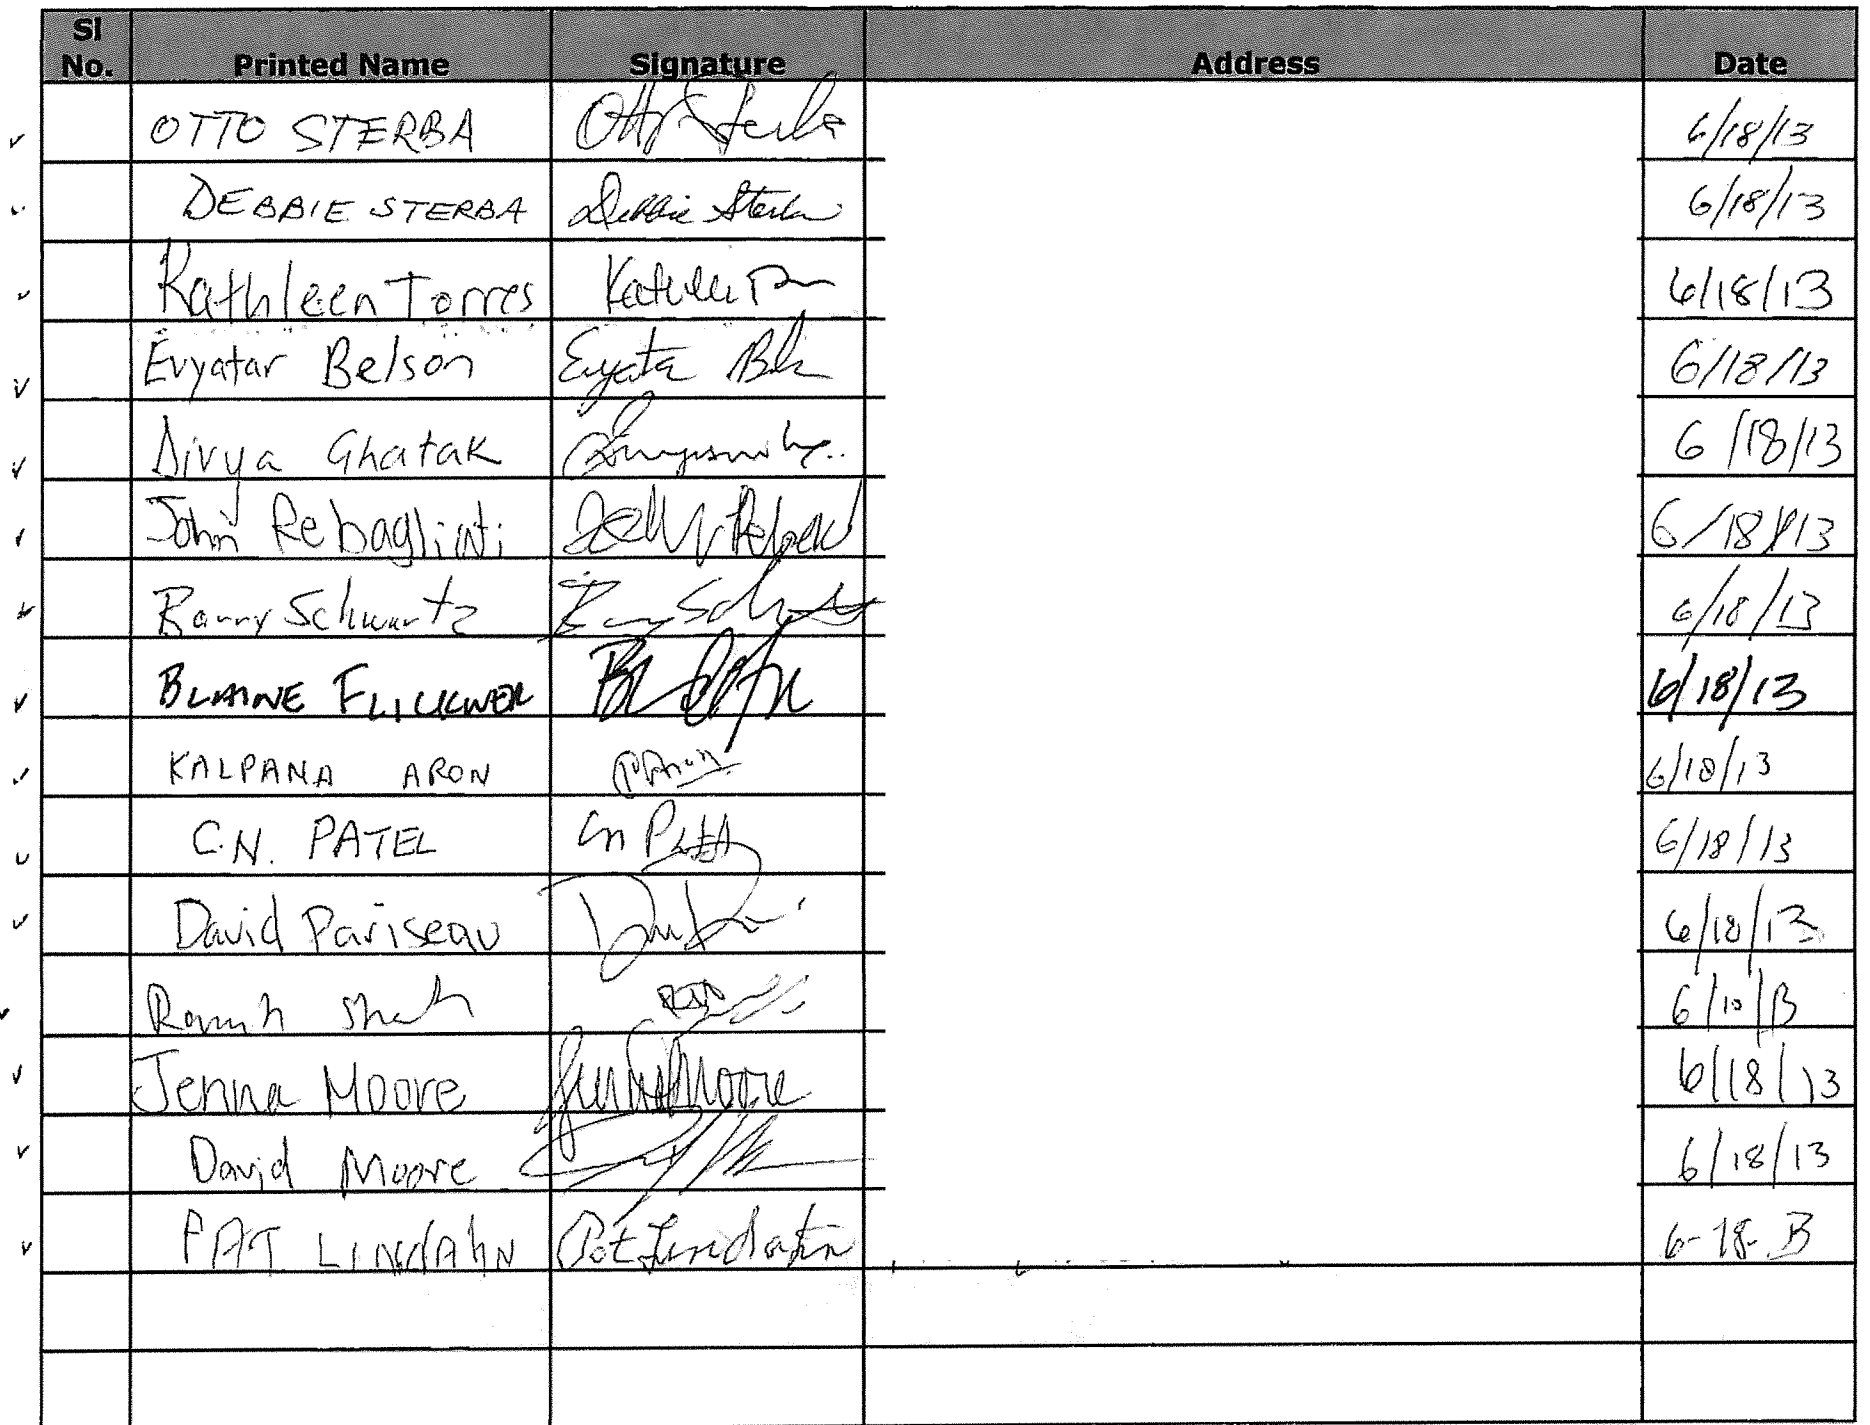 Sl No. Printed Name Signature Address Date
OTTO STERBA Otto Sterba 6/18/13
DEBBIE STERBA Debbie Sterba 6/18/13
Kathleen Torres 6/18/13
Evyatar Belson 6/18/13
Divya Ghatak 6/18/13
John Rebagliati 6/18/13
Barry Schwartz 6/18/13
BLAINE FLICKNER 6/18/13
KALPANA ARON 6/18/13
C.N. PATEL CN Patel 6/18/13
David Pariseau 6/18/13
Shah 6/18/13
Jenna Moore Jenna Moore 6/18/13
David Moore 6/18/13
PAT LINdAhN Pat Lindahn 6-18-13